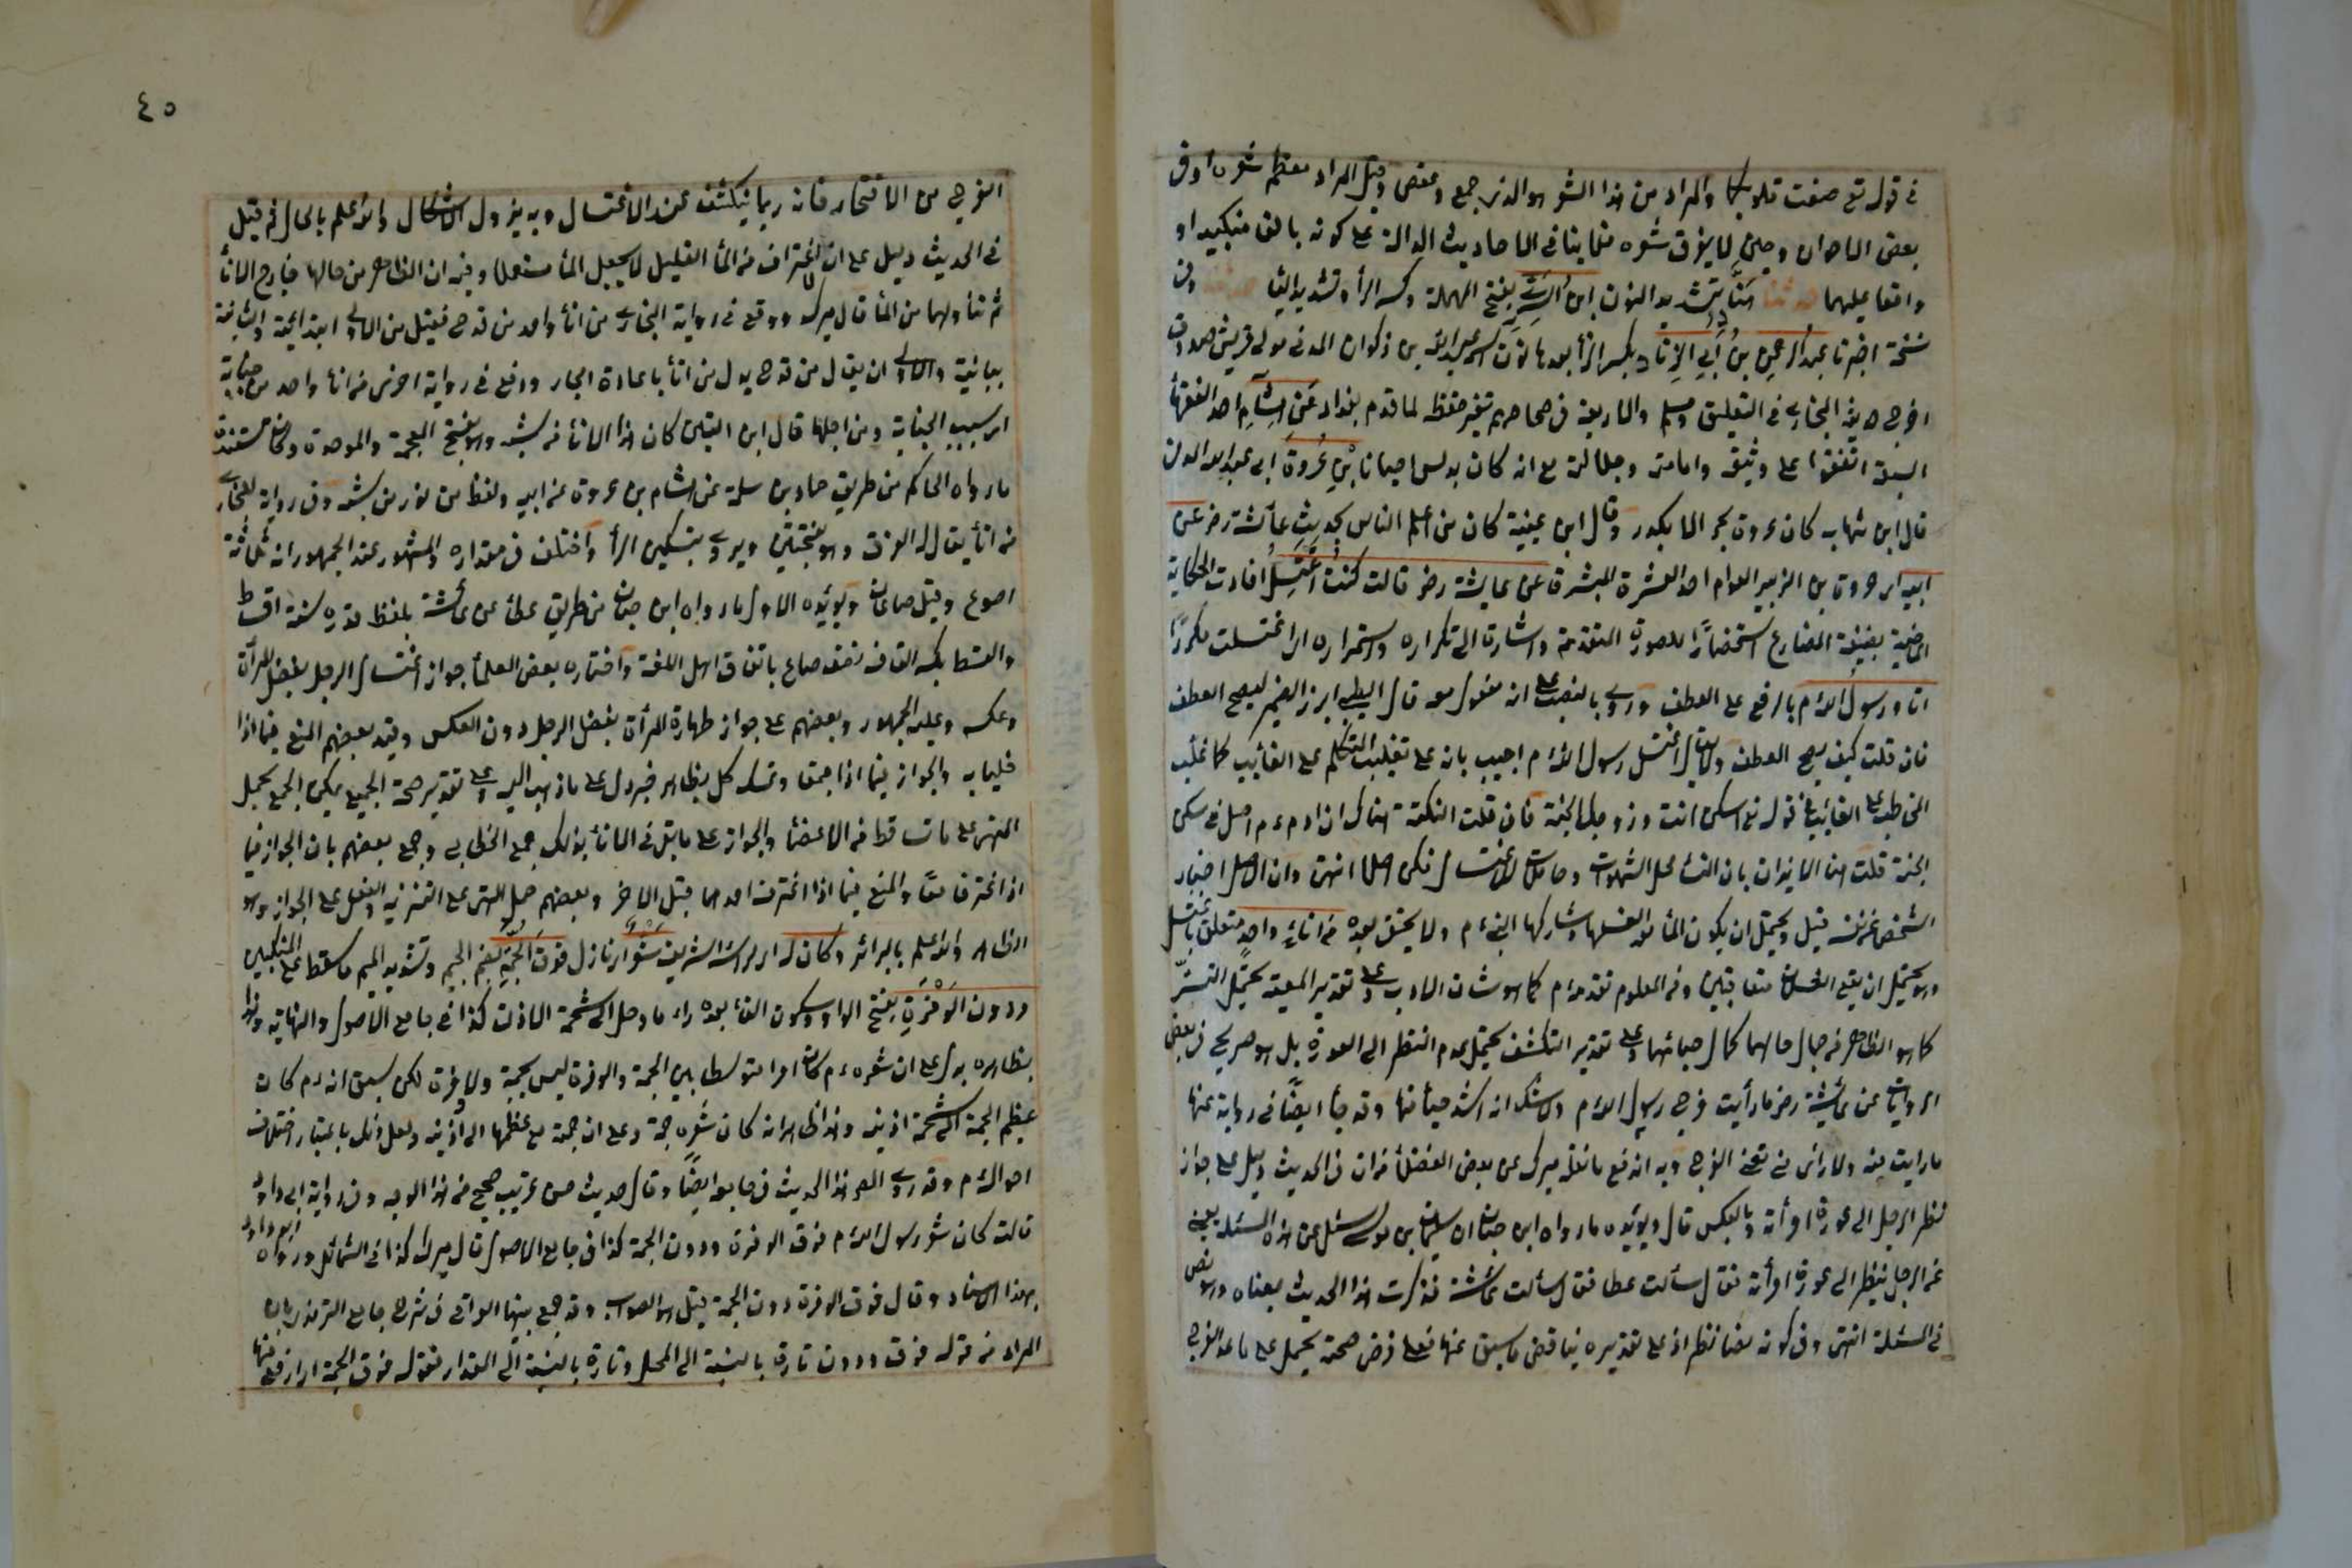 في قوله تع صغت قلوبكما والمراد من هذا الشعر هو الذي جمع وعقص وقيل المراد معظم شعره او في
بعض الاحوال وحين لا يفرق شعره فلا ينافي الاحاديث الدالة على كونه بالغا منكبيه او
واقعا عليهما حدثنا هناد بتشديد النون ابن السري بفتح المهملة وكسر الراء وتشديد الياء وفي
نسخة اخبرنا عبد الرحمن بن ابي الزناد بكسر الزاء بعدها نون اسمه عبد الله بن ذكوان المدني مولى قريش صدوق
اخرج حديثه البخاري في التعليق ومسلم والاربعة في صحاحهم تغير حفظه لما قدم بغداد عن هشام احد الفقهاء
السبعة اتفقوا على وثيقه وامامته وجلالته مع انه كان يدلس احيانا بن عروة ابي عبد الله المدني
قال ابن شهاب كان عروة بحرا لا يكدر وقال ابن عيينة كان من اعلم الناس بحديث عائشة رض عن
ابيه اي عروة بن الزبير العوام احد العشرة المبشرة عن عايشة رض قالت كنت اغتسل افادت الحكاية
الماضية بصيغة المضارع استحضارًا للصورة المتقدمة واشارة الى تكراره واستمراره اي اغتسلت مكررًا
انا ورسول الله م بالرفع على العطف وروي بالنصب على انه مفعول معه قال الطيبي ابرز الضمير ليصح العطف
فان قلت كيف يصح العطف ولا يقال اغتسل رسول الله م اجيب بانه على تغليب المتكلم على الغائب كما غلب
المخاطب على الغائب في قوله تع اسكن انت وزوجك الجنة فان قلت النكتة هناك ان ادم عم اصل في سكنى
الجنة قلت هنا الايذان بان النساء محل الشهوات وحاملات للاغتسال فكن اصلا انتهى وان الاصل اخبار
الشخص عن نفسه قيل ويحتمل ان يكون الماء معد لغسلها وشاركها النبي م ولا يخفى بعده من اناء واحد متعلق باغتسل
وهو يحتمل ان يقع الغسلان متعاقبين ومن المعلوم تقدمه م كما هو شان الادب وعلى تقدير المعية يحتمل التستر
كما هو الظاهر من جمال حالهما وكمال حيائهما وعلى تقدير التكشف يحتمل عدم النظر الى العورة بل هو صريح في بعض
الروايات عن عائشة رض ما رأيت فرج رسول الله م ولا شك انه اشد حياء منها وقد جاء ايضًا في رواية عنها
ما رايت منه ولا راى مني تعني الفرج وبه اندفع ما نقله ميرك عن بعض الفضلاء من ان في الحديث دليل على جواز
نظر الرجل الى عورة امرأته وبالعكس قال ويؤيده ما رواه ابن حبان ان سليمان بن موسى سئل عن هذه المسئلة يعني
عن الرجل ينظر الى عورة امرأته فقال سألت عطا فقال سألت عائشة فذكرت هذا الحديث بمعناه وهو نص
في المسئلة انتهى وفي كونه نصا نظر اذ على تقديره يناقض ما سبق عنها فعلى فرض صحته يحمل على ما عدا الفرج
٤٥
الفرج من الافخاذ فانه ربما ينكشف عند الاغتسال وبه يزول الاشكال والله اعلم بالحال ثم قيل
في الحديث دليل على ان الاغتراف من الماء القليل لا يجعل الماء مستعملا وفيه ان الظاهر من حالهما خارج الاناء
ثم تناولهما من الماء قال ميرك ووقع في رواية البخاري من اناء واحد من قدح فقيل من الاولى ابتدائية والثانية
بيانية والاولى ان يقال من قدح بدل من اناء باعادة الجار ووقع في رواية اخرى من اناء واحد من جنابة
اي بسبب الجنابة ومن اجلها قال ابن التين كان هذا الاناء من شبه وهو بفتح المعجمة والموحدة وكأن مستنده
ما رواه الحاكم من طريق حماد بن سلمة عن هشام بن عروة عن ابيه ولفظه من تور من شبه وفي رواية للبخاري
من اناء يقال له الفرق وهو بفتحتين ويروى بتسكين الراء واختلف في مقداره والمشهور عند الجمهور انه ثلاثة
اصوع وقيل صاعان ويؤيده الاول ما رواه ابن حبان من طريق عطاء عن عائشة بلفظ قدره ستة اقسط
والقسط بكسر القاف نصف صاع باتفاق اهل اللغة واختاره بعض العلماء جواز اغتسال الرجل بفضل المرأة
وعكسه وعليه الجمهور وبعضهم على جواز طهارة المرأة بفضل الرجل دون العكس وقيد بعضهم المنع فيما اذا
خليا به والجواز فيما اذا اجتمعا وتمسك كل بظاهر خبر دل على ما ذهب اليه وعلى تقدير صحة الجميع يمكن الجمع بحمل
النهي على ما تساقط من الاعضاء والجواز على ما بقي في الاناء بذلك جمع الخطابي وجمع بعضهم بان الجواز فيما
اذا اغترفا معًا والمنع فيما اذا اغترف احدهما قبل الاخر وبعضهم حمل النهي على التنزيه والفعل على الجواز وهو
الظاهر والله اعلم بالسرائر وكان له اي لراسه الشريف شعر اي نازل فوق الجمة بضم الجيم وتشديد الميم ما سقط على المنكبين
ودون الوفرة بفتح الواو وسكون الفاء بعده راء ما وصل الى شحمة الاذن كذا في جامع الاصول والنهاية وهذا
بظاهره يدل على ان شعره م كان امرا متوسطا بين الجمة والوفرة ليس بجمة ولا وفرة لكن سبق انه م كان
عظيم الجمة الى شحمة اذنيه وهذا ظاهر انه كان شعره جمة وعلى ان جمته مع عظمها الى اذنيه ولعل ذلك باعتبار اختلاف
احواله م وقد روى المص هذا الحديث في جامعه ايضًا وقال حديث حسن غريب صحيح من هذا الوجه وفي رواية ابي داود
قالت كان شعر رسول الله م فوق الوفرة ودون الجمة كذا في جامع الاصول قال ميرك كذا في الشمائل ورواه ابو داود
بهذا الاسناد وقال فوق الوفرة دون الجمة قيل هو الصواب وقد جمع بينهما العراقي في شرح جامع الترمذي بان
المراد من قوله فوق ودون تارة بالنسبة الى المحل وتارة بالنسبة الى المقدار فقوله فوق الجمة اي ارفع منها